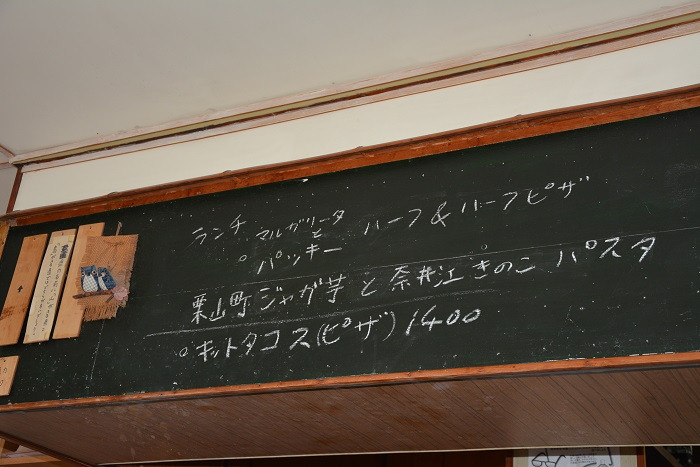 ランチ マルガリータ と パッキー ハーフ&ハーフピザ
栗山町ジャガ芋と奈井江きのこ パスタ
○キットタコス(ピザ)1400